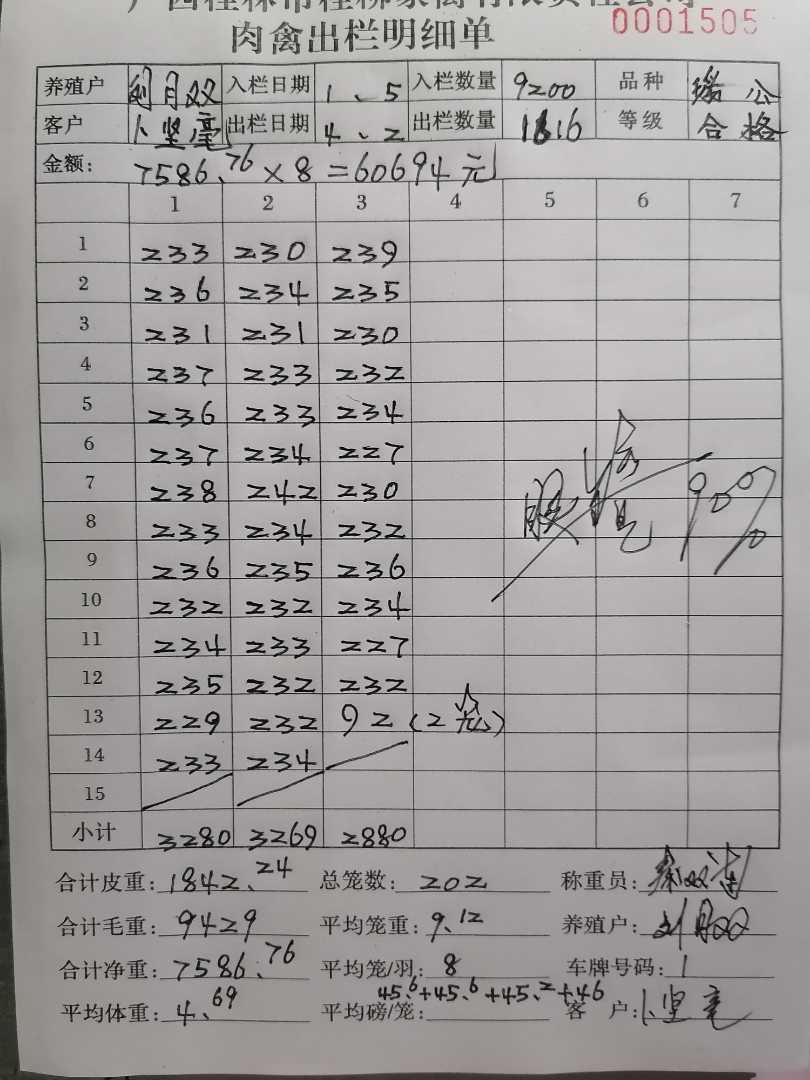 广西桂林市桂柳家禽有限责任公司
0001505
肉禽出栏明细单
养殖户 刘月双 入栏日期 1、5 入栏数量 9200 品种 公
客户 卜坚亳 出栏日期 4、2 出栏数量 1616 等级 合格
金额: 7586.76×8=60694元
1 2 3 4 5 6 7
1 233 230 239
2 236 234 235
3 231 231 230
4 237 233 232
5 236 233 234
6 237 234 227
7 238 242 230
8 233 234 232
9 236 235 236
10 232 232 234
11 234 233 227
12 235 232 232
13 229 232 92 (2笼)
14 233 234
15
90%
小计 3280 3269 2880
合计皮重: 1842.24 总笼数: 202 称重员:
合计毛重: 9429 平均笼重: 9.12 养殖户: 刘月双
合计净重: 7586.76 平均笼/羽: 8 车牌号码: 1
平均体重: 4.69 平均磅/笼: 45.6+45.6+45.2+46 客户: 卜坚亳